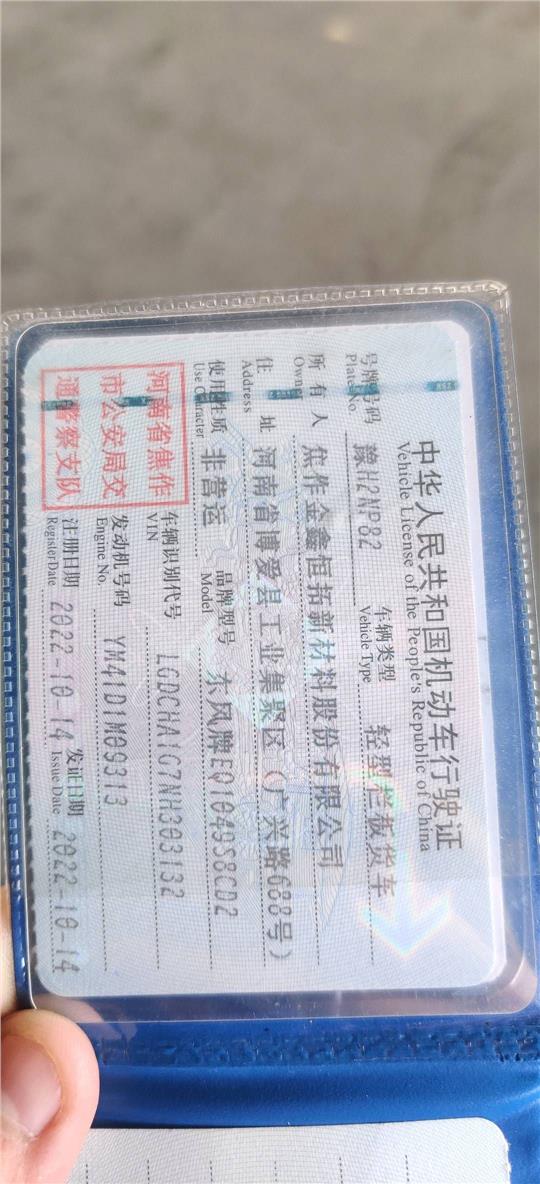 中华人民共和国机动车行驶证
Vehicle License of the People's Republic of China
号牌号码 豫H2NP82 车辆类型 轻型栏板货车
Plate No. Vehicle Type
所有人 焦作金鑫恒拓新材料股份有限公司
Owner
住址 河南省博爱县工业集聚区(广兴路688号)
Address
使用性质 非营运 品牌型号 东风牌EQ1049S8CD2
Use Character Model
河南省焦作
市公安局交
通警察支队
车辆识别代号 LGDCHA1G7NH303132
VIN
发动机号码 YM41D1M09313
Engine No.
注册日期 2022-10-14 发证日期 2022-10-14
Register Date Issue Date